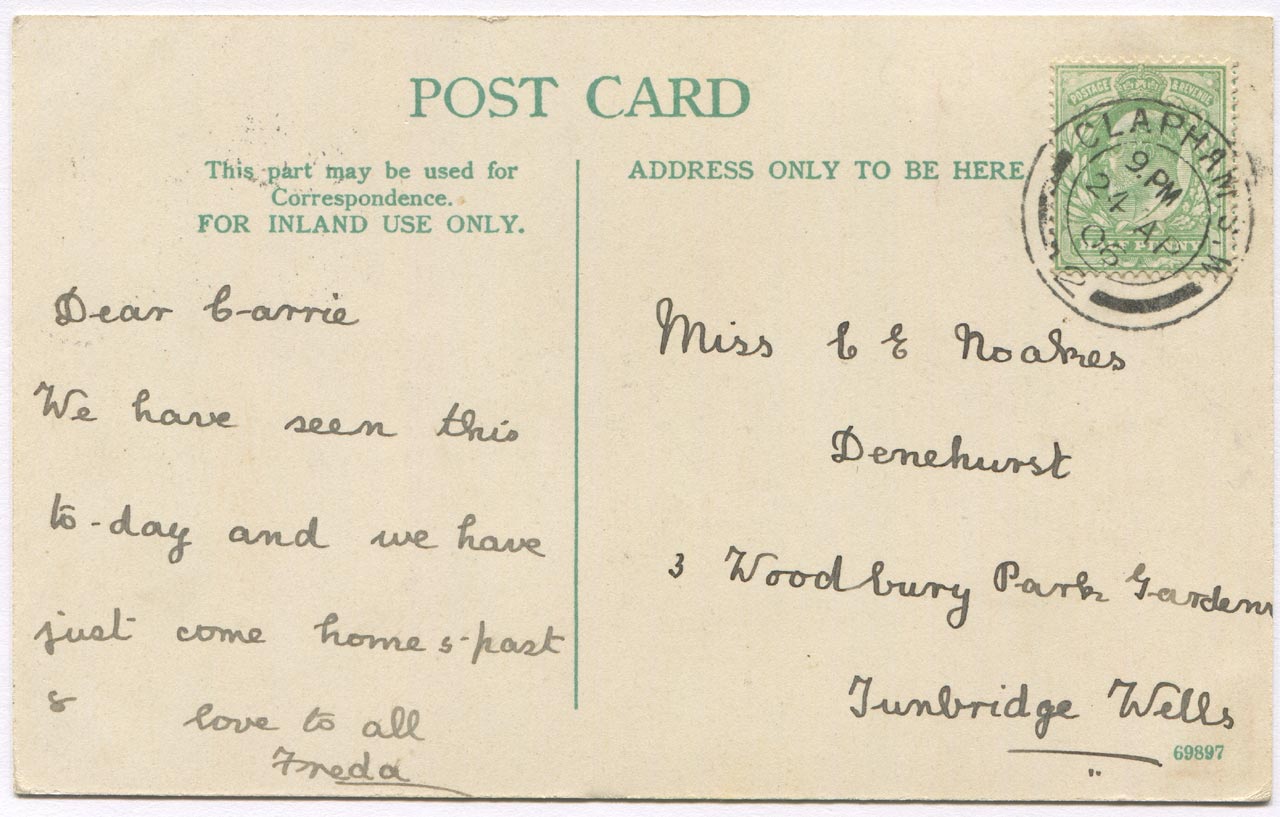 POST CARD
This part may be used for
Correspondence.
FOR INLAND USE ONLY.
Dear Carrie
We have seen this
to-day and we have
just come home
love to all
Freda
ADDRESS ONLY TO BE HERE
POSTAGE & REVENUE
HALF PENNY
CLAPHAM S.W.
9. PM
24 AP
06
2
Miss C E Noakes
Denehurst
3 Woodbury Park Gardens
Tunbridge Wells
69897